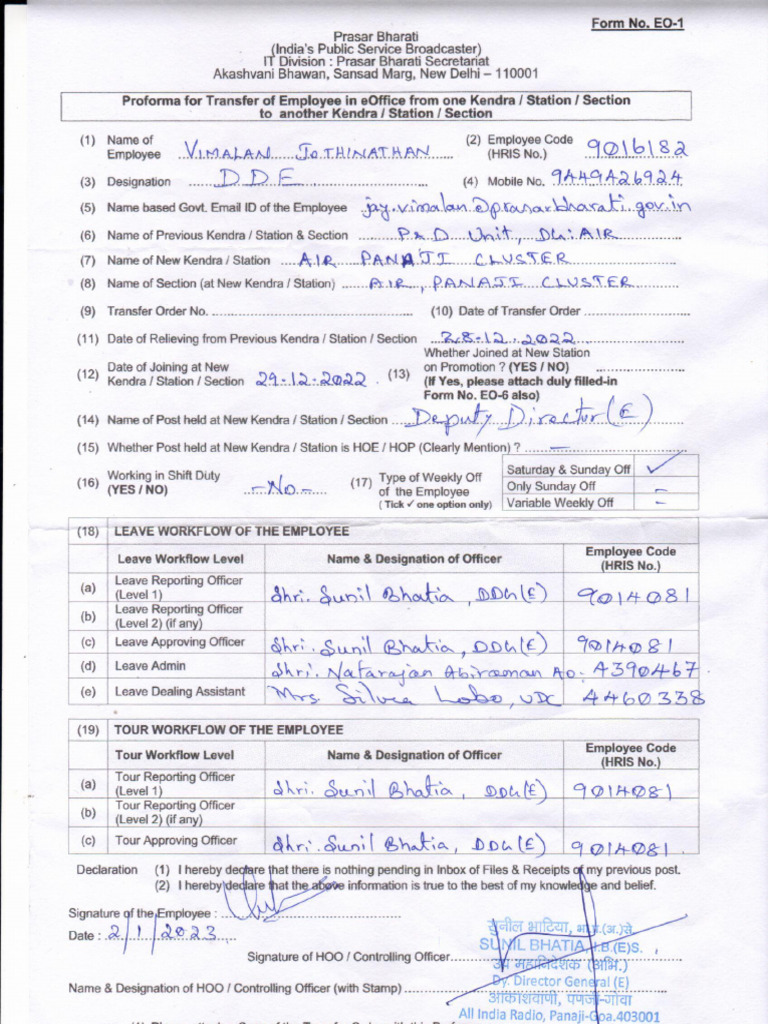 Form No. EO-1
Prasar Bharati
(India's Public Service Broadcaster)
IT Division : Prasar Bharati Secretariat
Akashvani Bhawan, Sansad Marg, New Delhi – 110001
Proforma for Transfer of Employee in eOffice from one Kendra / Station / Section
to another Kendra / Station / Section
(1) Name of Employee VIMALAN JOTHINATHAN (2) Employee Code (HRIS No.) 9016182
(3) Designation DDE (4) Mobile No. 9449426924
(5) Name based Govt. Email ID of the Employee jay.vimalan@prasarbharati.gov.in
(6) Name of Previous Kendra / Station & Section P&D Unit, DG:AIR
(7) Name of New Kendra / Station AIR PANAJI CLUSTER
(8) Name of Section (at New Kendra / Station) AIR, PANAJI CLUSTER
(9) Transfer Order No. (10) Date of Transfer Order
(11) Date of Relieving from Previous Kendra / Station / Section 28-12-2022
(12) Date of Joining at New Kendra / Station / Section 29-12-2022 (13) Whether Joined at New Station on Promotion ? (YES / NO)
(If Yes, please attach duly filled-in
Form No. EO-6 also)
(14) Name of Post held at New Kendra / Station / Section Deputy Director (E)
(15) Whether Post held at New Kendra / Station is HOE / HOP (Clearly Mention) ? –
(16) Working in Shift Duty (YES / NO) -No- (17) Type of Weekly Off of the Employee (Tick ✓ one option only)
Saturday & Sunday Off ✓
Only Sunday Off –
Variable Weekly Off –
(18) LEAVE WORKFLOW OF THE EMPLOYEE
Leave Workflow Level Name & Designation of Officer Employee Code (HRIS No.)
(a) Leave Reporting Officer (Level 1) Shri. Sunil Bhatia, DDG(E) 9014081
(b) Leave Reporting Officer (Level 2) (if any)
(c) Leave Approving Officer Shri. Sunil Bhatia, DDG(E) 9014081
(d) Leave Admin Shri. Natarajan Abiraman AO: A390467
(e) Leave Dealing Assistant Mrs. Silvia Lobo, UDC 4460338
(19) TOUR WORKFLOW OF THE EMPLOYEE
Tour Workflow Level Name & Designation of Officer Employee Code (HRIS No.)
(a) Tour Reporting Officer (Level 1) Shri. Sunil Bhatia, DDG(E) 9014081
(b) Tour Reporting Officer (Level 2) (if any)
(c) Tour Approving Officer Shri. Sunil Bhatia, DDG(E) 9014081
Declaration (1) I hereby declare that there is nothing pending in Inbox of Files & Receipts of my previous post.
(2) I hereby declare that the above information is true to the best of my knowledge and belief.
Signature of the Employee :
Date : 2/1/2023
सुनील भाटिया, भा.प्र.(अ.)से.
Signature of HOO / Controlling Officer SUNIL BHATIA, I.B.(E)S.
उप महानिदेशक (अभि.)
Dy. Director General (E)
Name & Designation of HOO / Controlling Officer (with Stamp)
आकाशवाणी, पणजी-गोवा
All India Radio, Panaji-Goa.403001